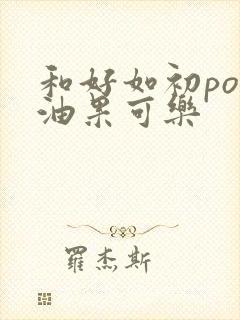 和好如初po
油果可樂
羅杰斯